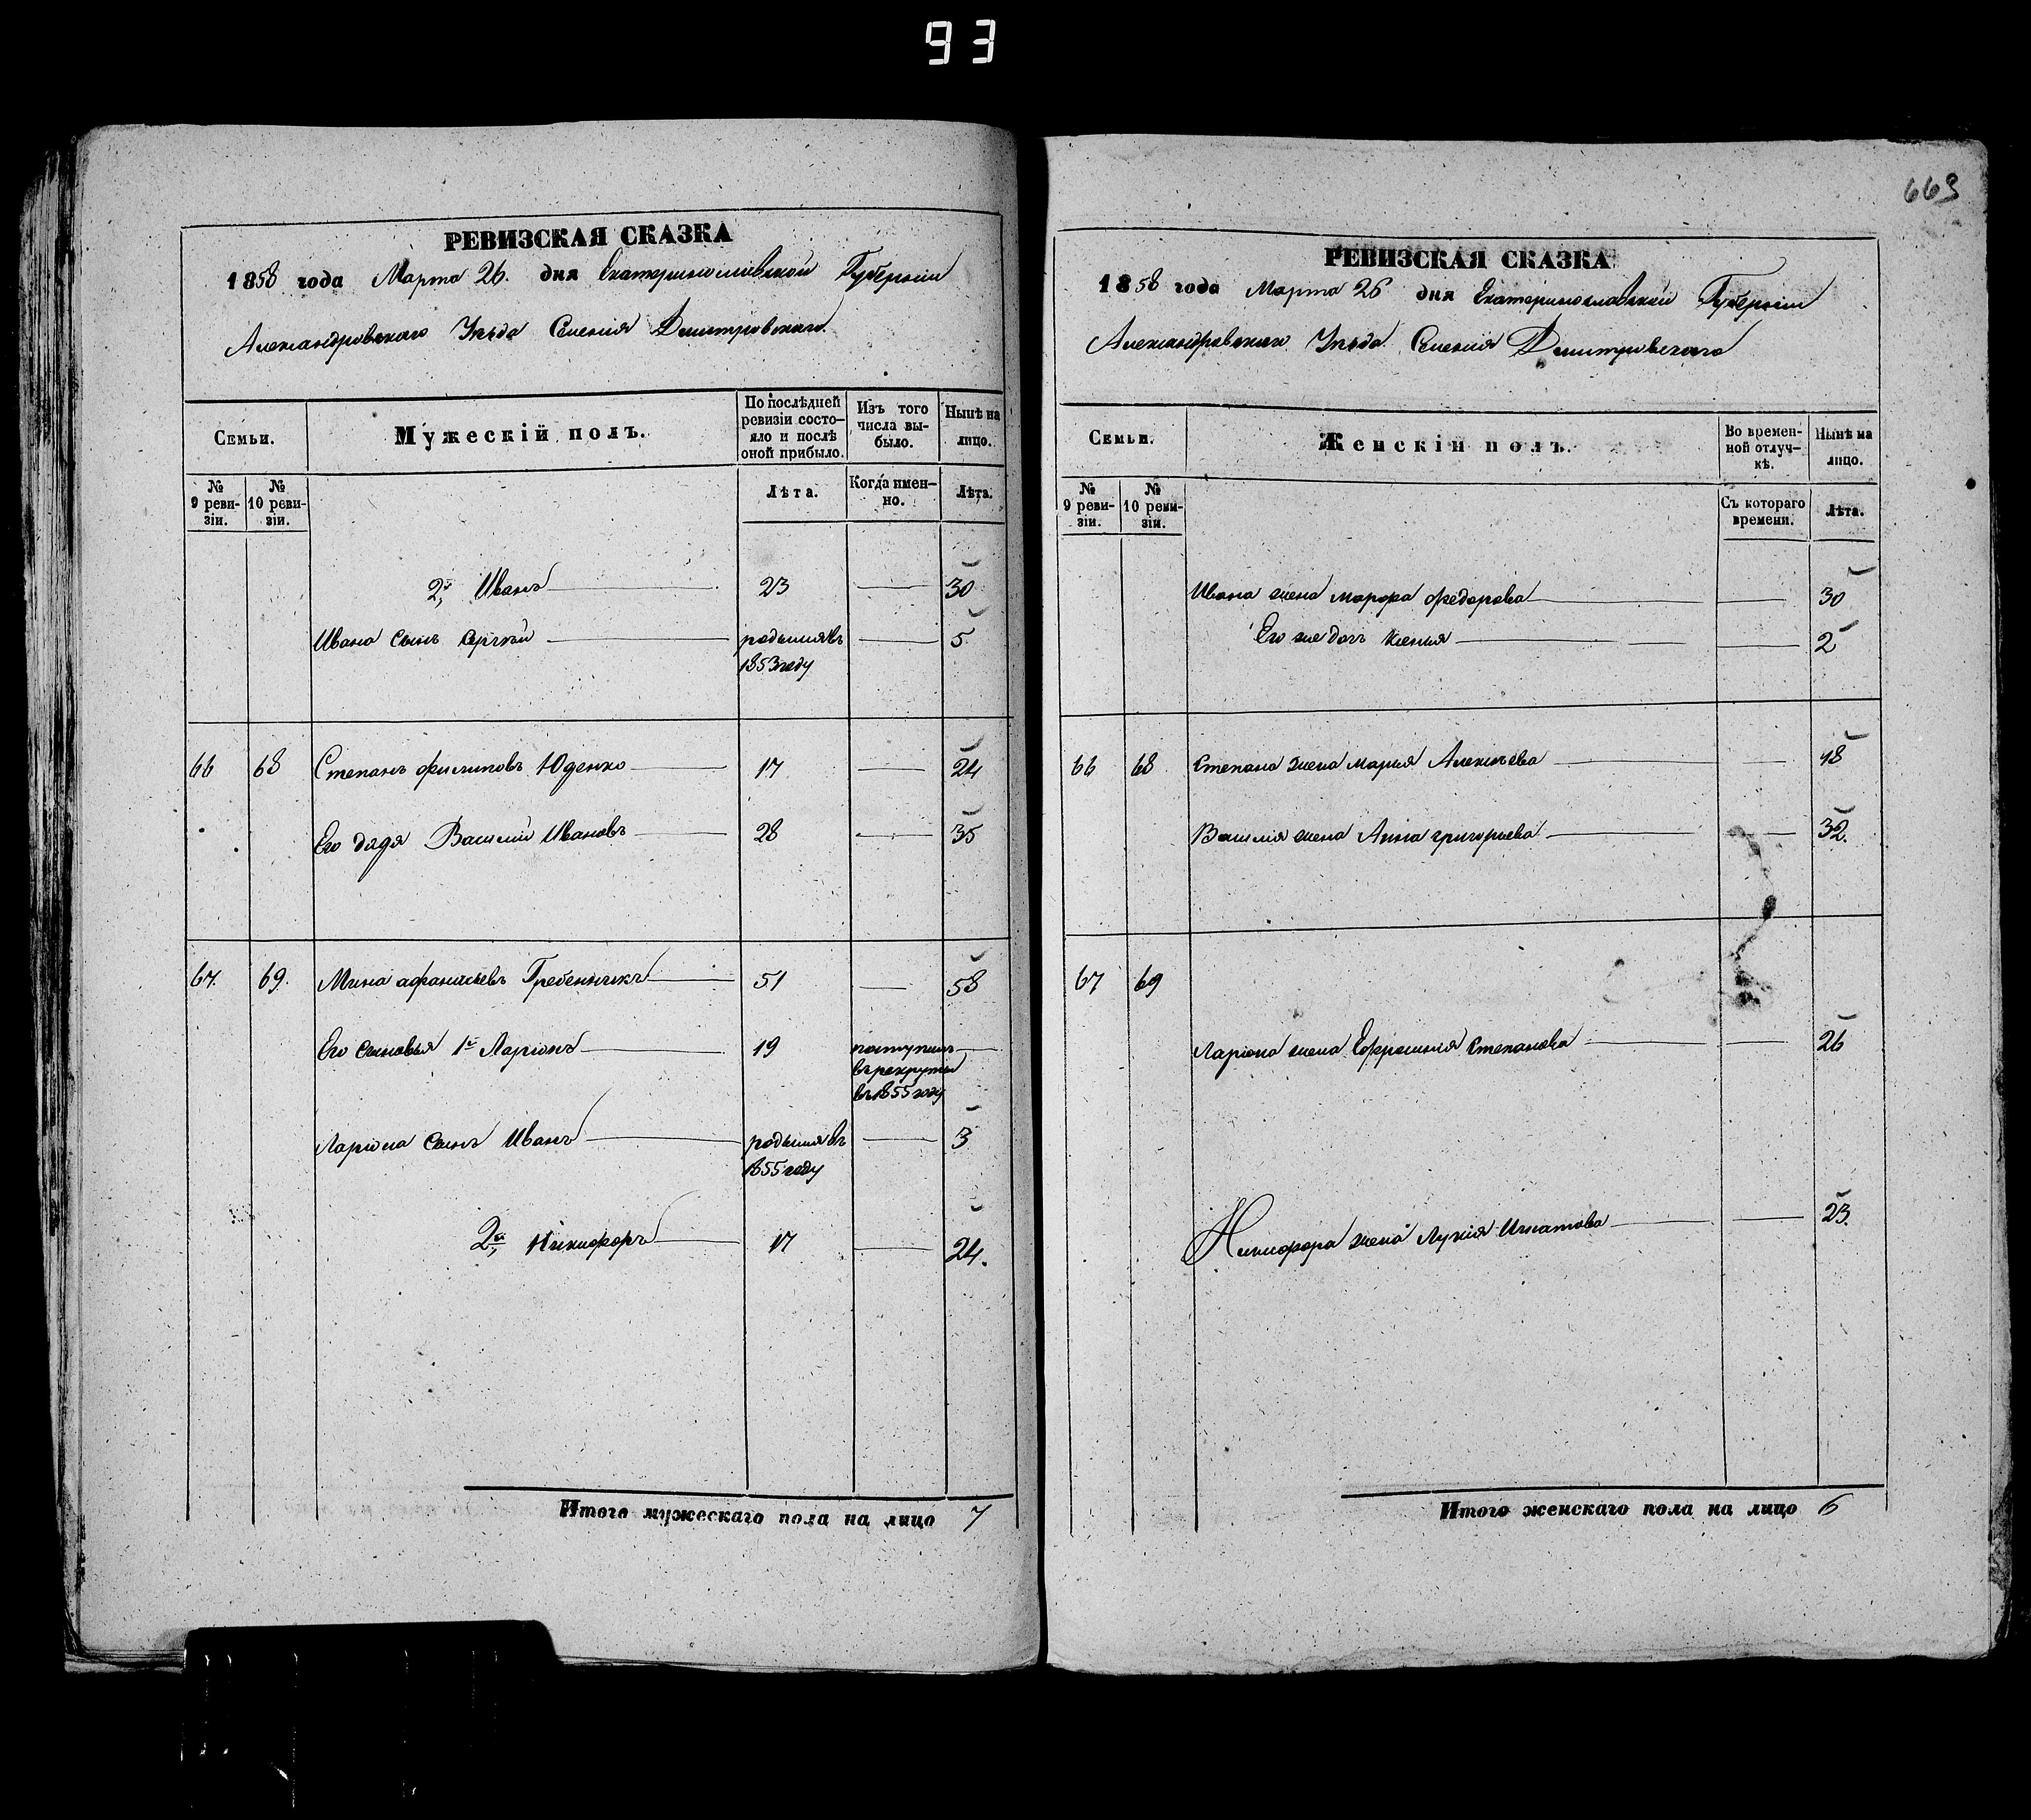 93
РЕВИЗСКАЯ СКАЗКА
1858 года Марта 26. дня Екатеринославской Губерніи
Александровского Уѣзда Селенія Дмитровского
Семьи.
Мужескій полъ.
По послѣдней ревизіи состояло и послѣ оной прибыло.
Изъ того числа выбыло.
Нынѣ на лицо.
№ 9 ревизіи.
№ 10 ревизіи.
Лѣта.
Когда именно.
Лѣта.
2й Иванъ 23 30
Ивана сынъ Сергѣй родился въ 5
1853 году
66 68 Степанъ Филиповъ Юденко 17 24
Его дядя Василий Ивановъ 28 35
67. 69. Мина Афанасьевъ Гребенникъ 51 58
Его сыновья 1й Ларіонъ 19 поступилъ
въ рекруты
въ 1855 году
Ларіона сынъ Иванъ родился въ 3
1855 году
2й Никифоръ 17 24.
Итого мужескаго пола на лицо 7
669
РЕВИЗСКАЯ СКАЗКА
1858 года Марта 26 дня Екатеринославской Губерніи
Александровского Уѣзда Селенія Дмитровского
Семьи.
Женскій полъ.
Во временной отлучкѣ.
Нынѣ на лицо.
№ 9 ревизіи.
№ 10 ревизіи.
Съ котораго времени.
Лѣта.
Ивана жена Марфа Федорова 30
Его же дочь Ксенія 2
66 68 Степана жена Марья Алексѣева 18
Василія жена Анна Григорьева 32.
67 69
Ларіона жена Ефросинія Степанова 26
Никифора жена Лукія Игнатова 23.
Итого женскаго пола на лицо 6